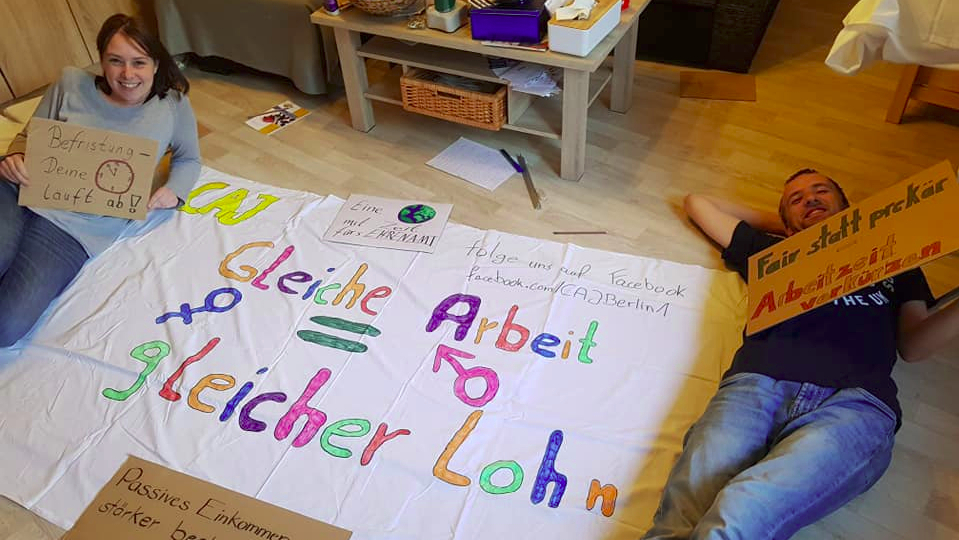 Befristung-
Deine
läuft ab!
CAJ
Eine
mit Zeit
fürs EHRENAMT
folge uns auf Facebook
facebook.com/CAJBerlin1
Gleiche = Arbeit
gleicher Lohn
Fair statt prekär!
Arbeitzeit
verkürzen
THE
Passives Einkommen
stärker